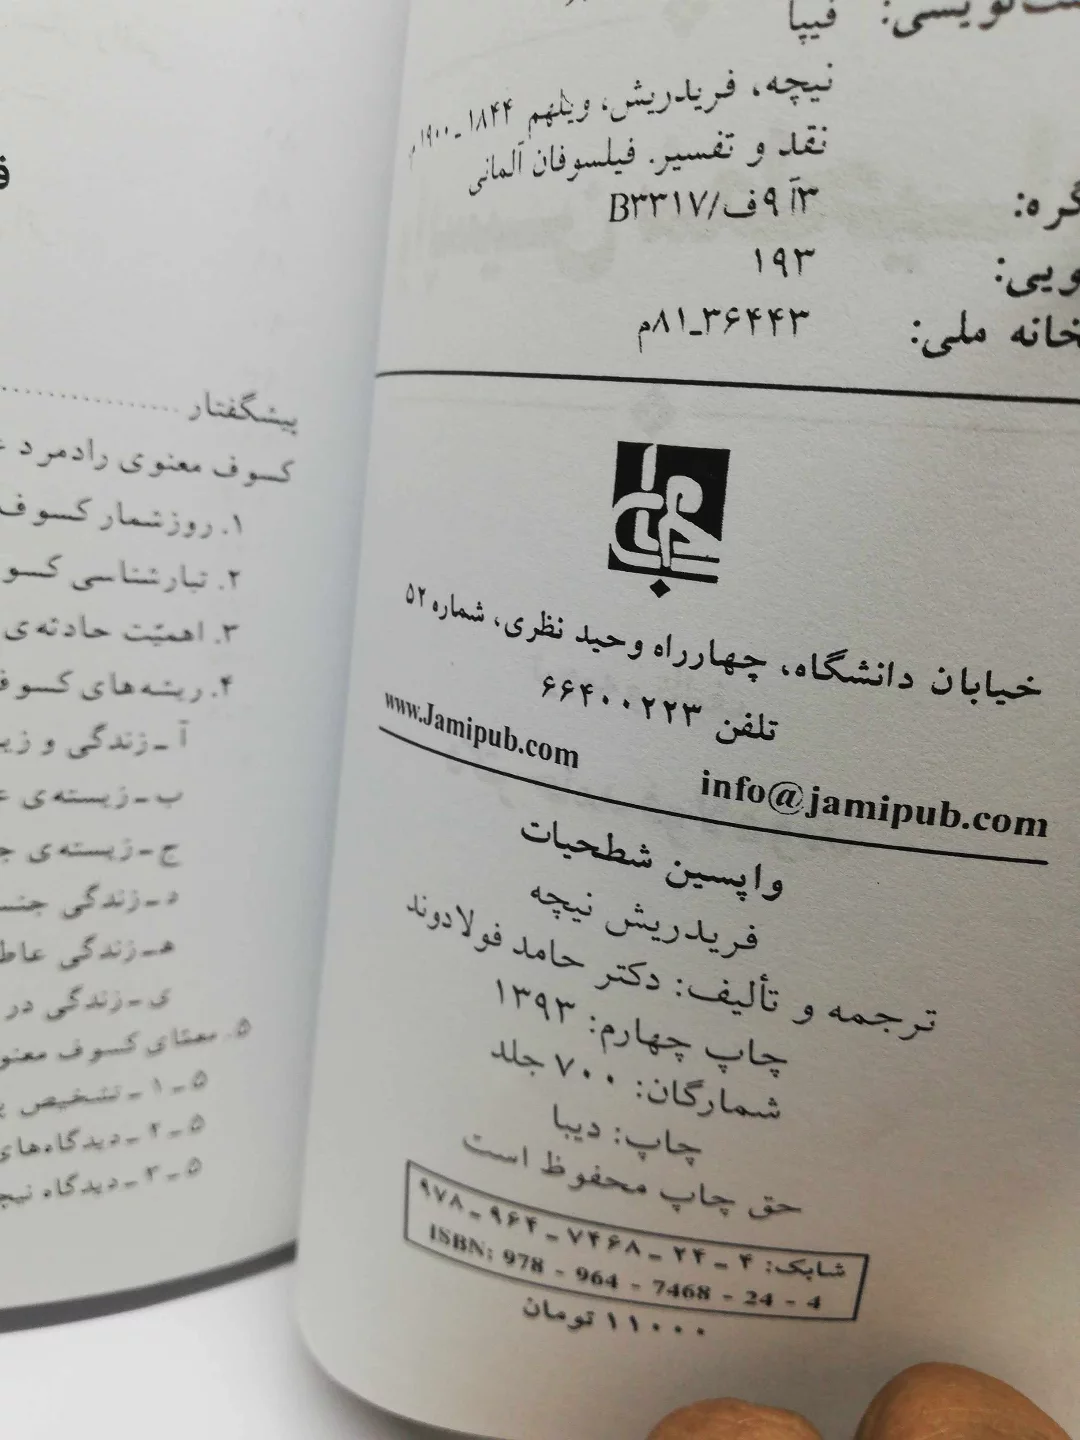 فیپا
نیچه، فریدریش، ویلهم ۱۸۴۴ ـ ۱۹۰۰م
نقد و تفسیر. فیلسوفان آلمانی
۳آ۹ف/B۳۳۱۷
۱۹۳
خانه ملی: ۳۶۴۴۳ـ۸۱م
خیابان دانشگاه، چهارراه وحید نظری، شماره ۵۲
تلفن ۶۶۴۰۰۲۲۳
www.Jamipub.com info@jamipub.com
واپسین شطحیات
فریدریش نیچه
ترجمه و تألیف: دکتر حامد فولادوند
چاپ چهارم: ۱۳۹۳
شمارگان: ۷۰۰ جلد
چاپ: دیبا
حق چاپ محفوظ است
شابک: ۴ ـ ۲۴ ـ ۷۴۶۸ ـ ۹۶۴ ـ ۹۷۸
ISBN: 978 - 964 - 7468 - 24 - 4
۱۱۰۰۰ تومان
پیشگفتار
کسوف معنوی رادمرد
۱. روزشمار کسوف
۲. تبارشناسی
۳. اهمیّت حادثه‌ی
۴. ریشه‌های
آ ـ زندگی و
ب ـ زیسته‌ی
ج ـ زیسته‌ی
د ـ زندگی
هـ ـ زندگی
ی ـ زندگی در
۵. معمّای کسوف
۵ ـ ۱ ـ تشخیص
۵ ـ ۲ ـ دیدگاه‌های
۵ ـ ۳ ـ دیدگاه